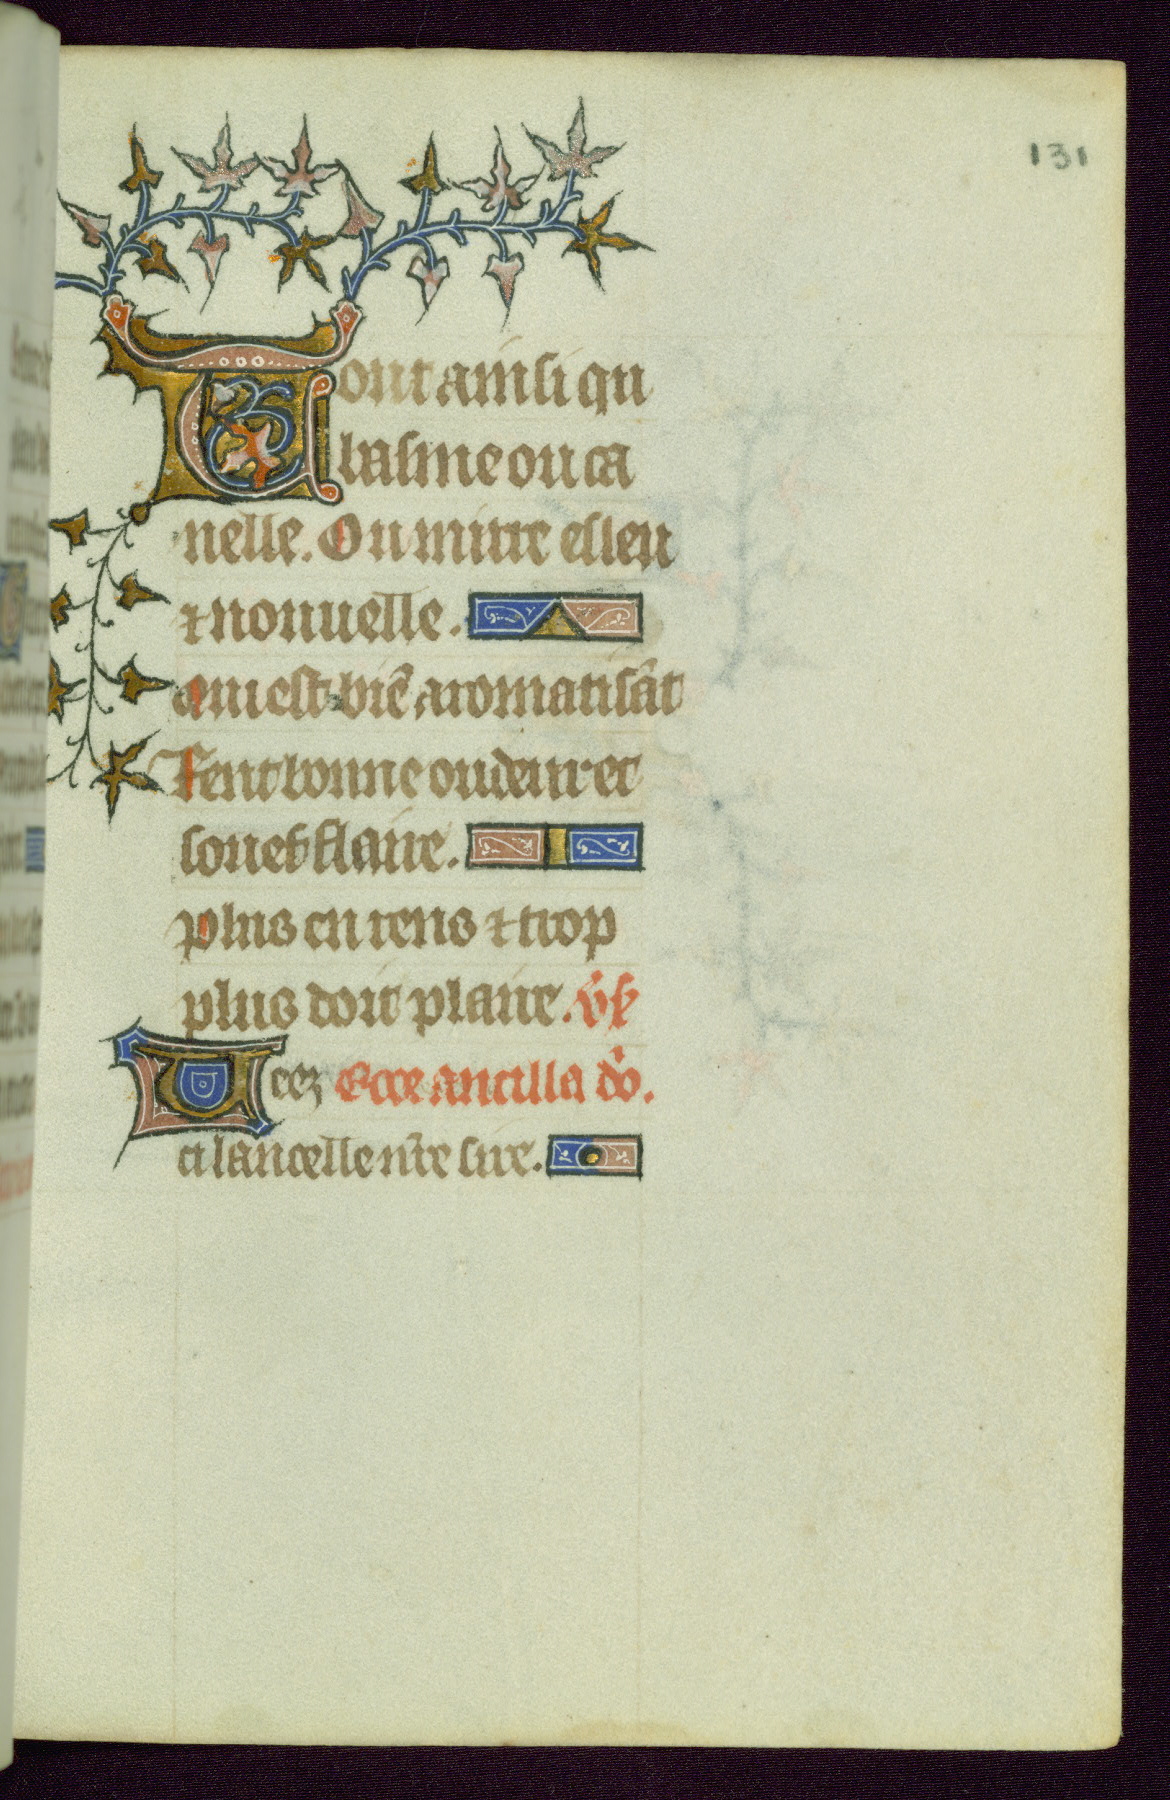 131
Tout ainsi qu
basme ou ca
nelle. Ou mirre esleu
⁊ nouuelle.
Qui est biẽ aromatisãt
Rent bonne oudeur et
souef flaire.
Plus en rens ⁊ trop
plus doit plaire. v̾s̾
Veez Ecce ancilla dñi.
ci lancelle nr̃e sire.